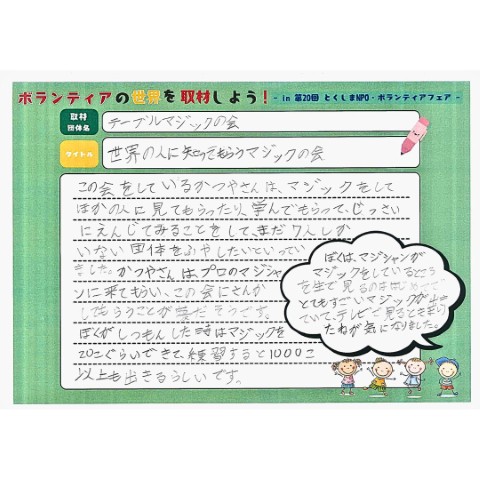 ボランティアの世界を取材しよう! - in 第20回 とくしまNPO・ボランティアフェア -
取材団体名
テーブルマジックの会
タイトル
世界の人に知ってもらうマジックの会
この会をしているかつやさんは、マジックをして
ほかの人に見てもらったり、学んでもらって、じっさい
にえんじてみることをして、まだ7人しか
いない団体をふやしたいといってい
ました。かつやさんはプロのマジシャ
ンに来てもらい、この会にさんか
してもらうことが夢だそうです。
ぼくがしつもんした時はマジックを
20こぐらいできて、練習すると1000こ
以上も出きるらしいです。
ぼくは、マジシャンが
マジックをしているところ
を生で見るのははじめてで
とてもすごいマジックが出き
ていて、テレビで見るときより
たねが気になりました。